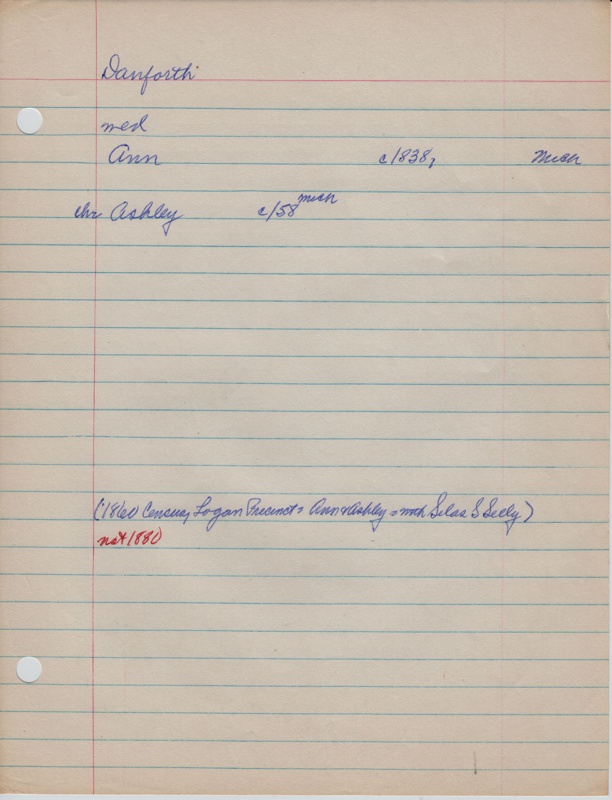 Danforth
med
Ann c/1838, Mich
chr Ashley c/58 mich
(1860 Census, Logan Precinct = Ann & Ashley = with Silas S Seely)
not 1880